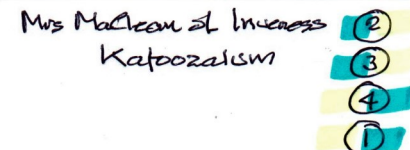 Mrs Maclean of Inverness ②
Katoozalum ③
④
①